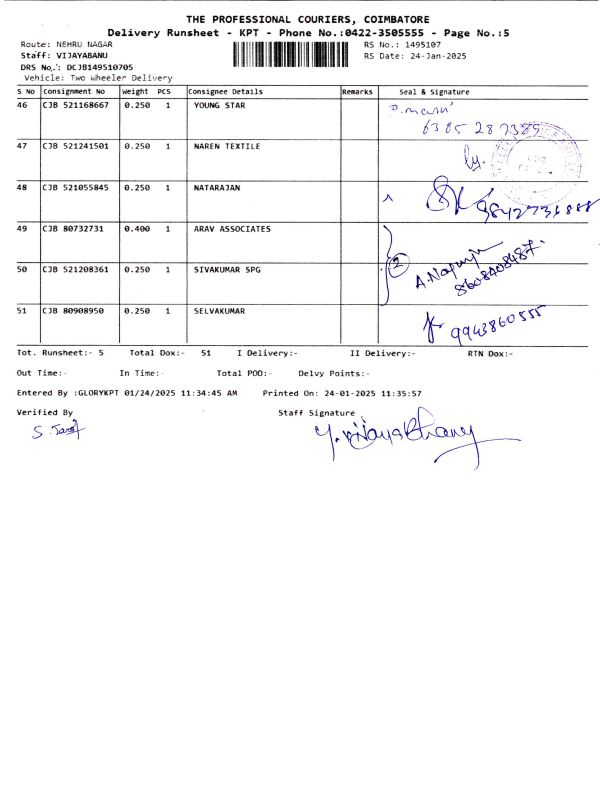 THE PROFESSIONAL COURIERS, COIMBATORE
Delivery Runsheet - KPT - Phone No.:0422-3505555 - Page No.:5
Route: NEHRU NAGAR RS No.: 1495107
Staff: VIJAYABANU RS Date: 24-Jan-2025
DRS No.: DCJB149510705
Vehicle: Two Wheeler Delivery
S No Consignment No Weight PCS Consignee Details Remarks Seal & Signature
46 CJB 521168667 0.250 1 YOUNG STAR
47 CJB 521241501 0.250 1 NAREN TEXTILE
48 CJB 521055845 0.250 1 NATARAJAN
49 CJB 80732731 0.400 1 ARAV ASSOCIATES
2
50 CJB 521208361 0.250 1 SIVAKUMAR SPG
8608408487
51 CJB 80908950 0.250 1 SELVAKUMAR
9943860555
Tot. Runsheet:- 5 Total Dox:- 51 I Delivery:- II Delivery:- RTN Dox:-
Out Time:- In Time:- Total POD:- Delvy Points:-
Entered By :GLORYKPT 01/24/2025 11:34:45 AM Printed On: 24-01-2025 11:35:57
Verified By Staff Signature